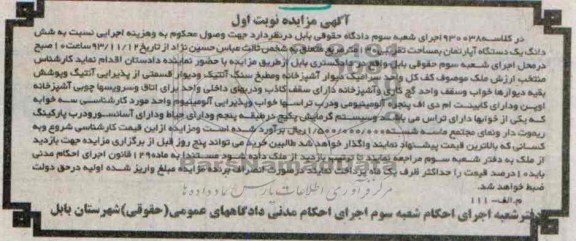 آگهی مزایده نوبت اول
در کلاسه ۹۳۰۰۳۸ اجرای شعبه سوم دادگاه حقوقی بابل در نظر دارد جهت وصول محکوم به و هزینه اجرایی نسبت به شش
دانگ یک دستگاه آپارتمان بمساحت تقریبی متر مربع متعلق به شخص ثالث عباس حسین نژاد از تاریخ ۹۳/۱۱/۱۲ ساعت ۱۰ صبح
در محل اجرای شعبه سوم حقوقی بابل واقع در دادگستری بابل از طریق مزایده با حضور نماینده دادستان اقدام نماید کارشناس
منتخب ارزش ملک موصوف کف کل واحد سرامیک دیوار آشپزخانه و مطبخ سنگ آنتیک و دیوار قسمتی از پذیرایی آنتیک و پوشش
بقیه دیوارها خواب و سقف واحد گچ کاری و آشپزخانه دارای سقف کاذب و دربهای داخلی واحد برای اتاق و سرویسها چوبی آشپزخانه
اوپن و دارای کابینت ام دی اف پنجره آلومینیومی و درب تراسها خواب و پذیرایی آلومینیوم واحد مورد کارشناسی سه خوابه
که یکی از خوابها دارای تراس می باشد و سیستم گرمایش پکیج در طبقه پنجم و دارای حیاط و دارای آسانسور و درب پارکینگ
ریموت دار و نمای مجتمع ماسه شسته ۱/۵۰۰/۰۰۰/۰۰۰ ریال برآورد شده است و مزایده از این قیمت کارشناسی شروع و به
کسانی که بالاترین قیمت پیشنهاد نمایند واگذار خواهد شد طالبین خرید می تواند پنج روز قبل از برگزاری مزایده جهت بازدید
از ملک به دفتر شعبه سوم مراجعه نمایند تا ترتیب بازدید از ملک داده شود مستندا به ماده ۱۲۹ قانون اجرای احکام مدنی
باید ۱۰ درصد قیمت را حداکثر ظرف یک ماه پرداخت نمایند در صورت انصراف برنده مزایده مبلغ واریز شده اولیه در حق دولت
ضبط خواهد شد.
مرکز فرآوری اطلاعات پارس داده دادها
م.الف- ۱۱۱
دفتر شعبه اجرای احکام شعبه سوم اجرای احکام مدنی دادگاههای عمومی (حقوقی) شهرستان بابل